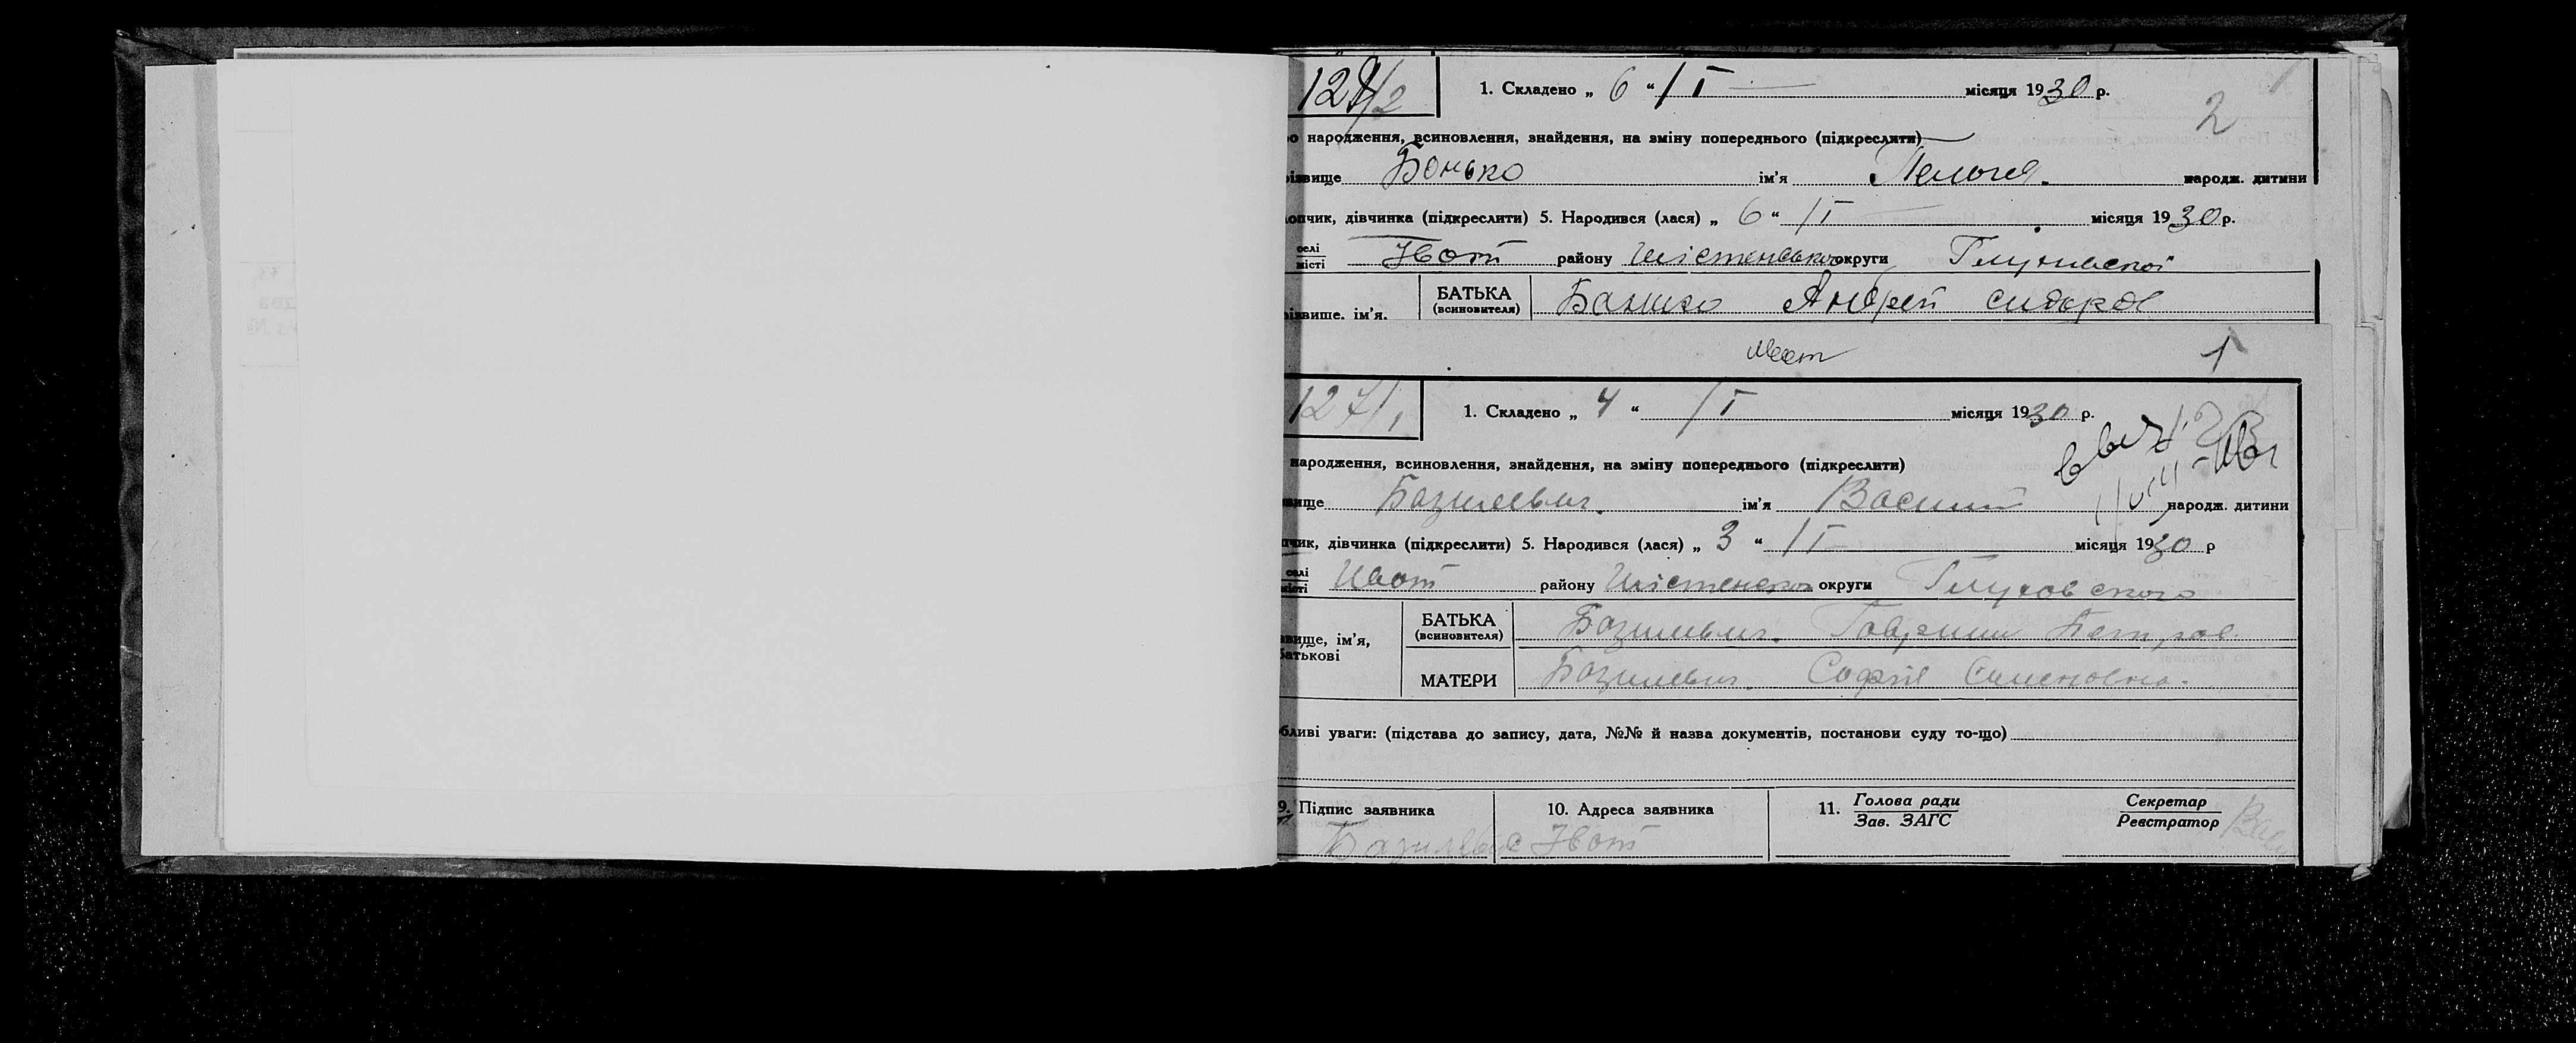 128/2
1. Складено „ 6 “ / I місяця 1930 р.
2
народження, всиновлення, знайдення, на зміну попереднього (підкреслити)
Бонько ім’я народж. дитини
дівчинка (підкреслити) 5. Народився (лася) „ 6 “ / I місяця 1930 р.
селі
місті Ивот району округи
БАТЬКА
(всиновителя) Банько Андрей Сидоров
ім’я.
Ивот
1
127/1
1. Складено „ 4 “ / I місяця 1930 р.
народження, всиновлення, знайдення, на зміну попереднього (підкреслити)
Базилевич ім’я Василий народж. дитини
дівчинка (підкреслити) 5. Народився (лася) „ 3 “ / I місяця 1930 р
селі
місті Ивот району округи Глуховского
БАТЬКА
(всиновителя) Базилевич Гавриил Петров
ім’я,
МАТЕРИ Базилевич София Семеновна.
уваги: (підстава до запису, дата, №№ й назва документів, постанови суду то-що)
9. Підпис заявника 10. Адреса заявника 11. Голова ради
Зав. ЗАГС Секретар
Реєстратор
Базилевич Ивот